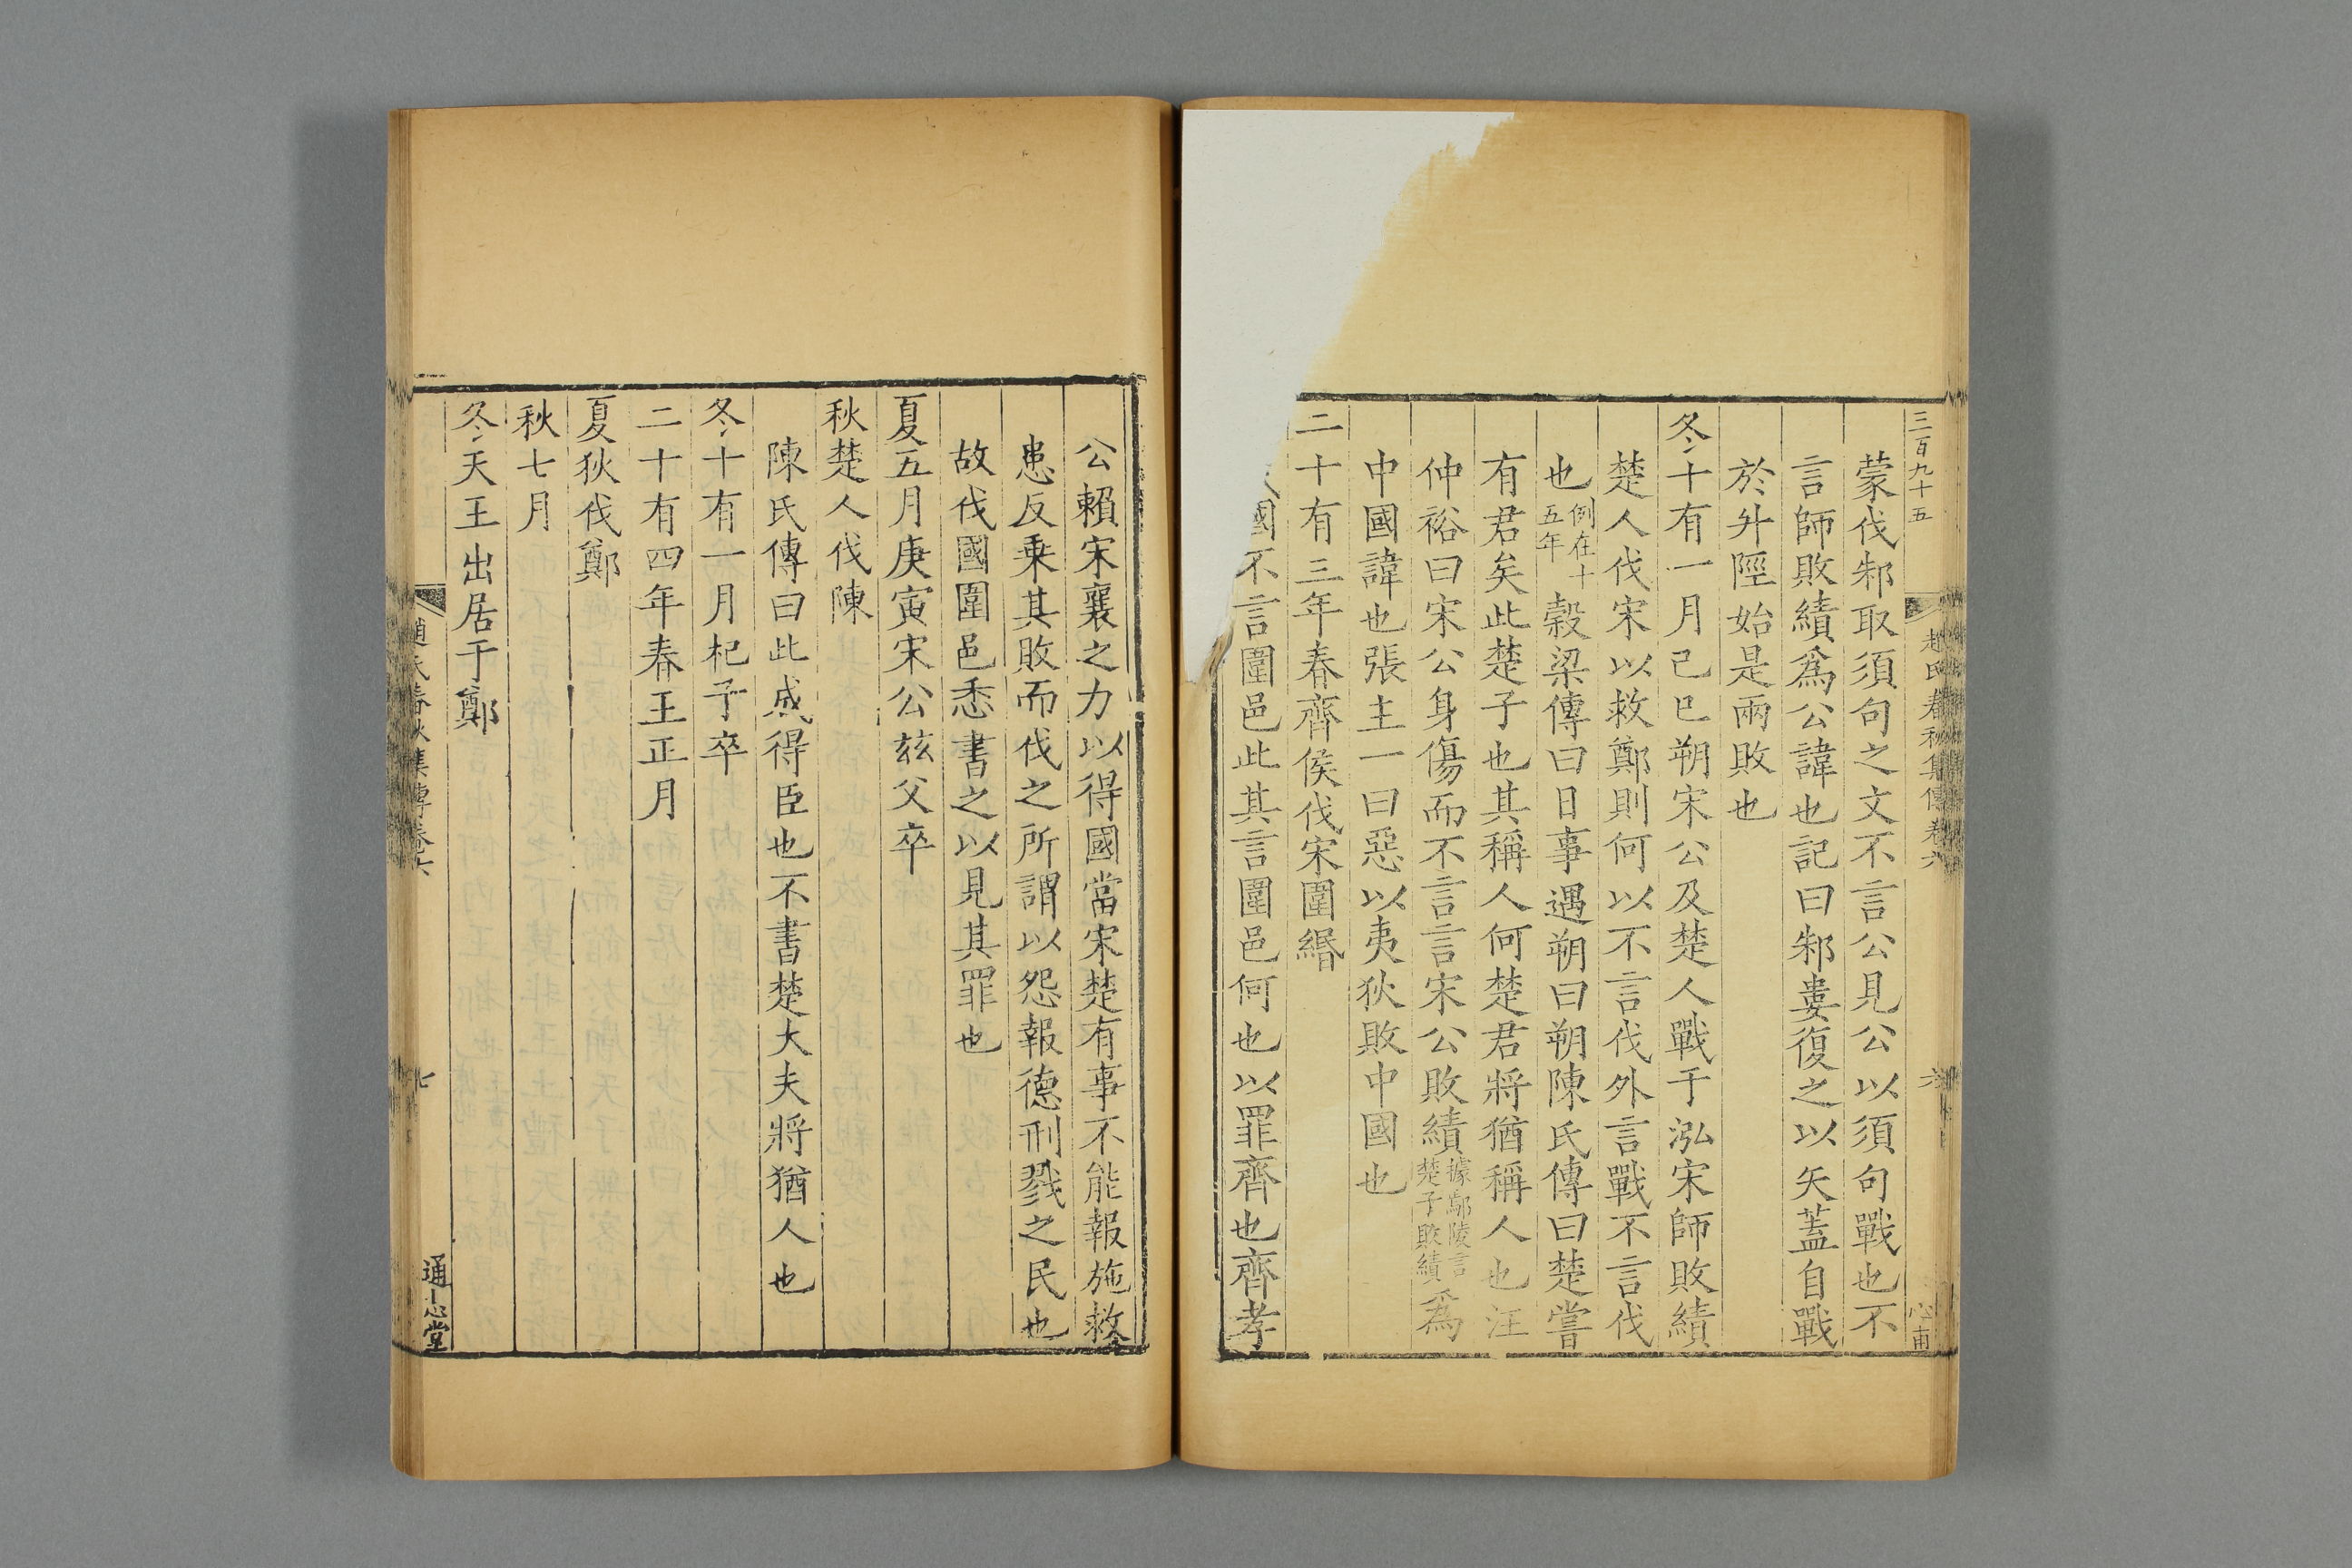 三百九十五
趙氏春秋集傳卷六
六
心甫
蒙伐邾取須句之文不言公見公以須句戰也不
言師敗績爲公諱也記曰邾婁復之以矢蓋自戰
於升陘始是兩敗也
冬十有一月己巳朔宋公及楚人戰于泓宋師敗績
楚人伐宋以救鄭則何以不言伐外言戰不言伐
也例在十五年穀梁傳曰日事遇朔曰朔陳氏傳曰楚嘗
有君矣此楚子也其稱人何楚君將猶稱人也汪
仲裕曰宋公身傷而不言言宋公敗績據鄢陵言楚子敗績爲
中國諱也張主一曰惡以夷狄敗中國也
二十有三年春齊侯伐宋圍緡
國不言圍邑此其言圍邑何也以罪齊也齊孝
公賴宋襄之力以得國當宋楚有事不能報施救
患反乗其敗而伐之所謂以怨報德刑戮之民也
故伐國圍邑悉書之以見其罪也
夏五月庚寅宋公茲父卒
秋楚人伐陳
陳氏傳曰此成得臣也不書楚大夫將猶人也
冬十有一月杞子卒
二十有四年春王正月
夏狄伐鄭
秋七月
冬天王出居于鄭
趙氏春秋集傳卷六
七
通志堂